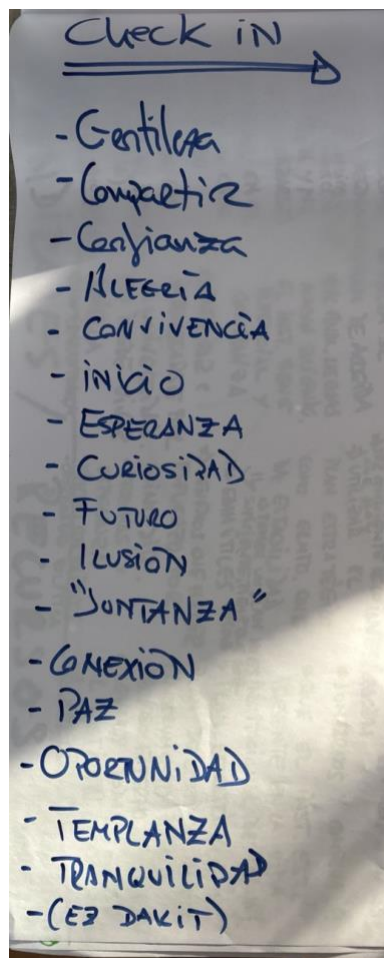 Check iN
- Gentileza
- Compartir
- Confianza
- ALEGRÍA
- CONVIVENCIA
- iNiCiO
- ESPERANZA
- CURIOSIDAD
- FUTURO
- ILUSIÓN
- "JUNTANZA"
- CONEXIÓN
- PAZ
- OPORTUNIDAD
- TEMPLANZA
- TRANQUILIDAD
- (EZ DAKIT)